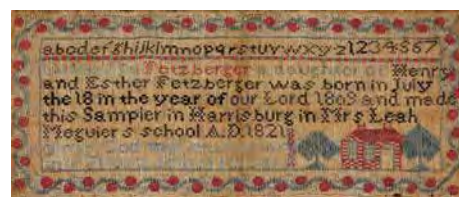 abcdefghijklmnopqrstuvwxyz1234567
Fetzberger a daughter of Henry
and Esther Fetzberger was born in July
the 18 in the year of our Lord 1805 and made
this Sampler in Harrisburg in Mrs Leah
Meguiers school A.D.1821